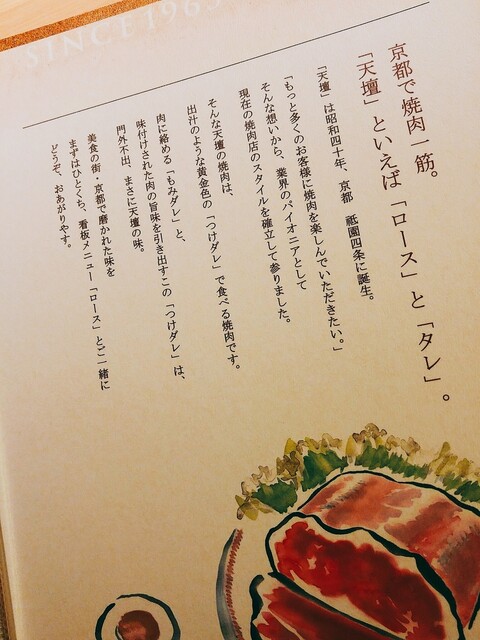 SINCE1965
京都で焼肉一筋。
「天壇」といえば「ロース」と「タレ」。
「天壇」は昭和四十年、京都 祇園四条に誕生。
「もっと多くのお客様に焼肉を楽しんでいただきたい。」
そんな想いから、業界のパイオニアとして
現在の焼肉店のスタイルを確立して参りました。
そんな天壇の焼肉は、
出汁のような黄金色の「つけダレ」で食べる焼肉です。
肉に絡める「もみダレ」と、
味付けされた肉の旨味を引き出すこの「つけダレ」は、
門外不出、まさに天壇の味。
美食の街・京都で磨かれた味を
まずはひとくち、看板メニュー「ロース」とご一緒に
どうぞ、おあがりやす。